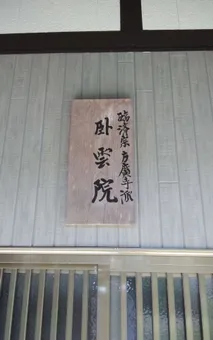 臨済宗方廣寺派
卧雲院